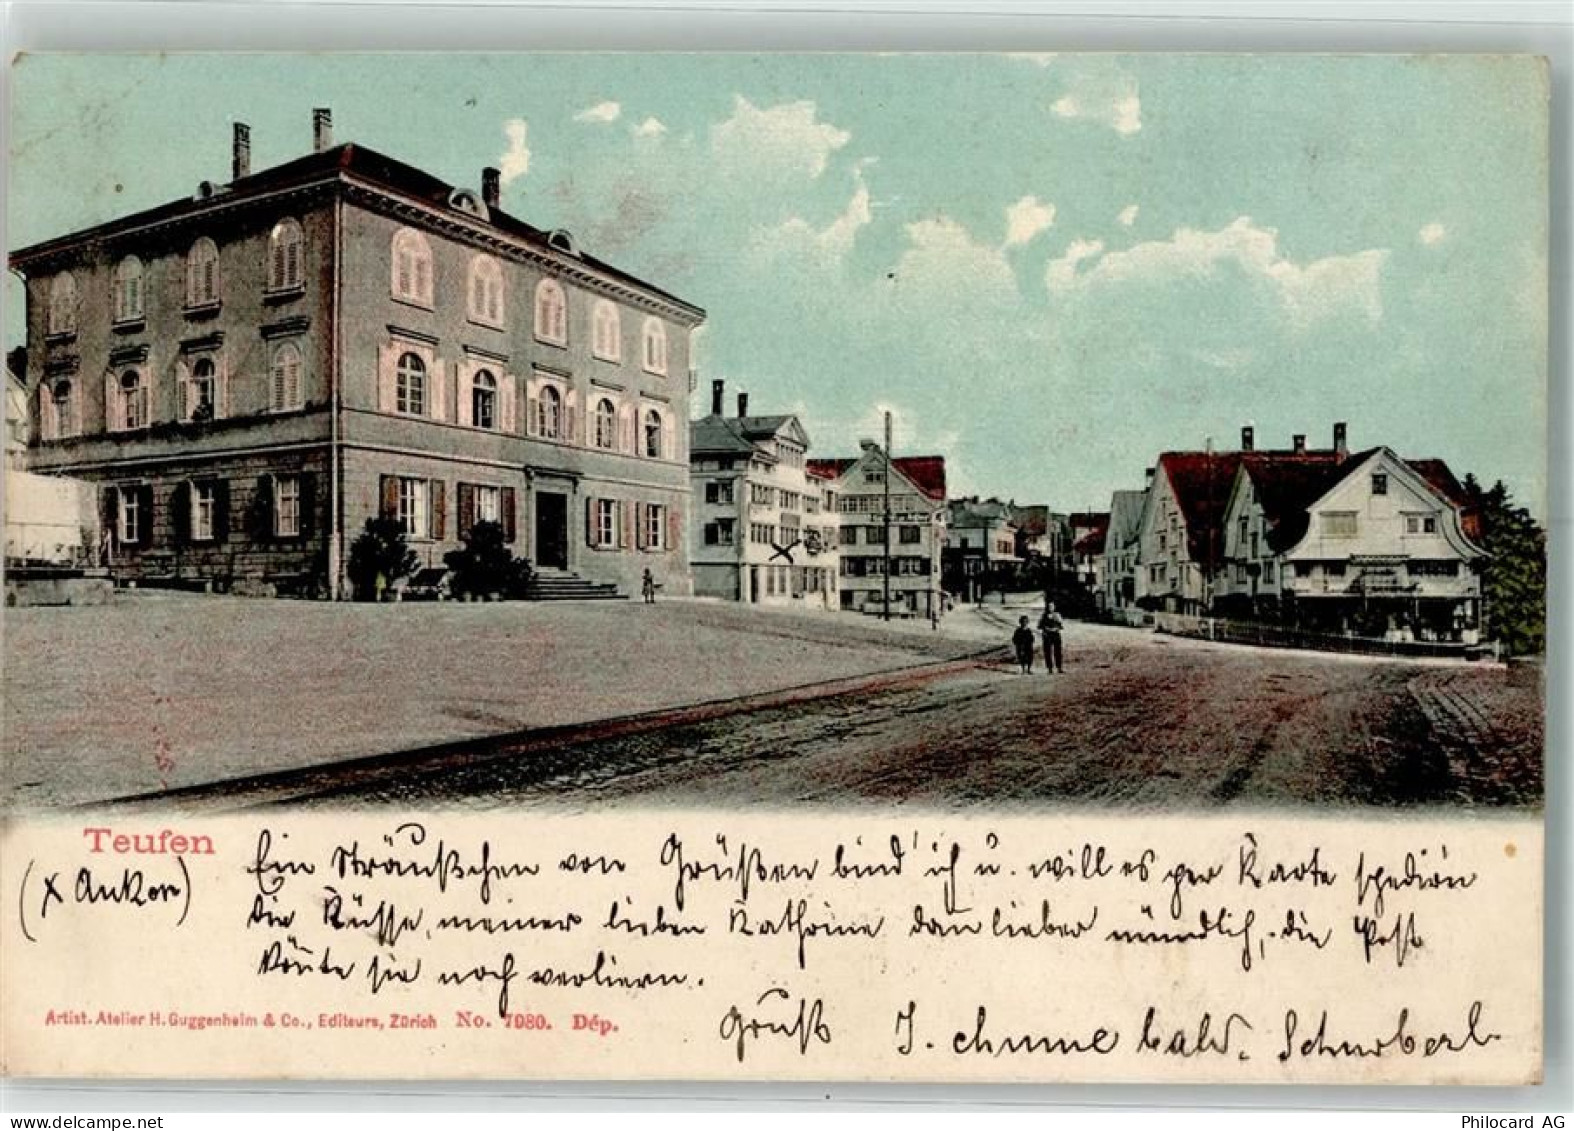 Teufen
(x Anker)
Ein Sträußchen von Grüßen bind' ich u. will es per Karte spedirn
die Küsse, meiner lieben Kathrine dann lieber mündlich, die Post
könnte sie noch verliern.
Gruß I. chume bald.
Artist. Atelier H. Guggenheim & Co., Editeurs, Zürich No. 7980. Dép.
www.delcampe.net
Philocard AG